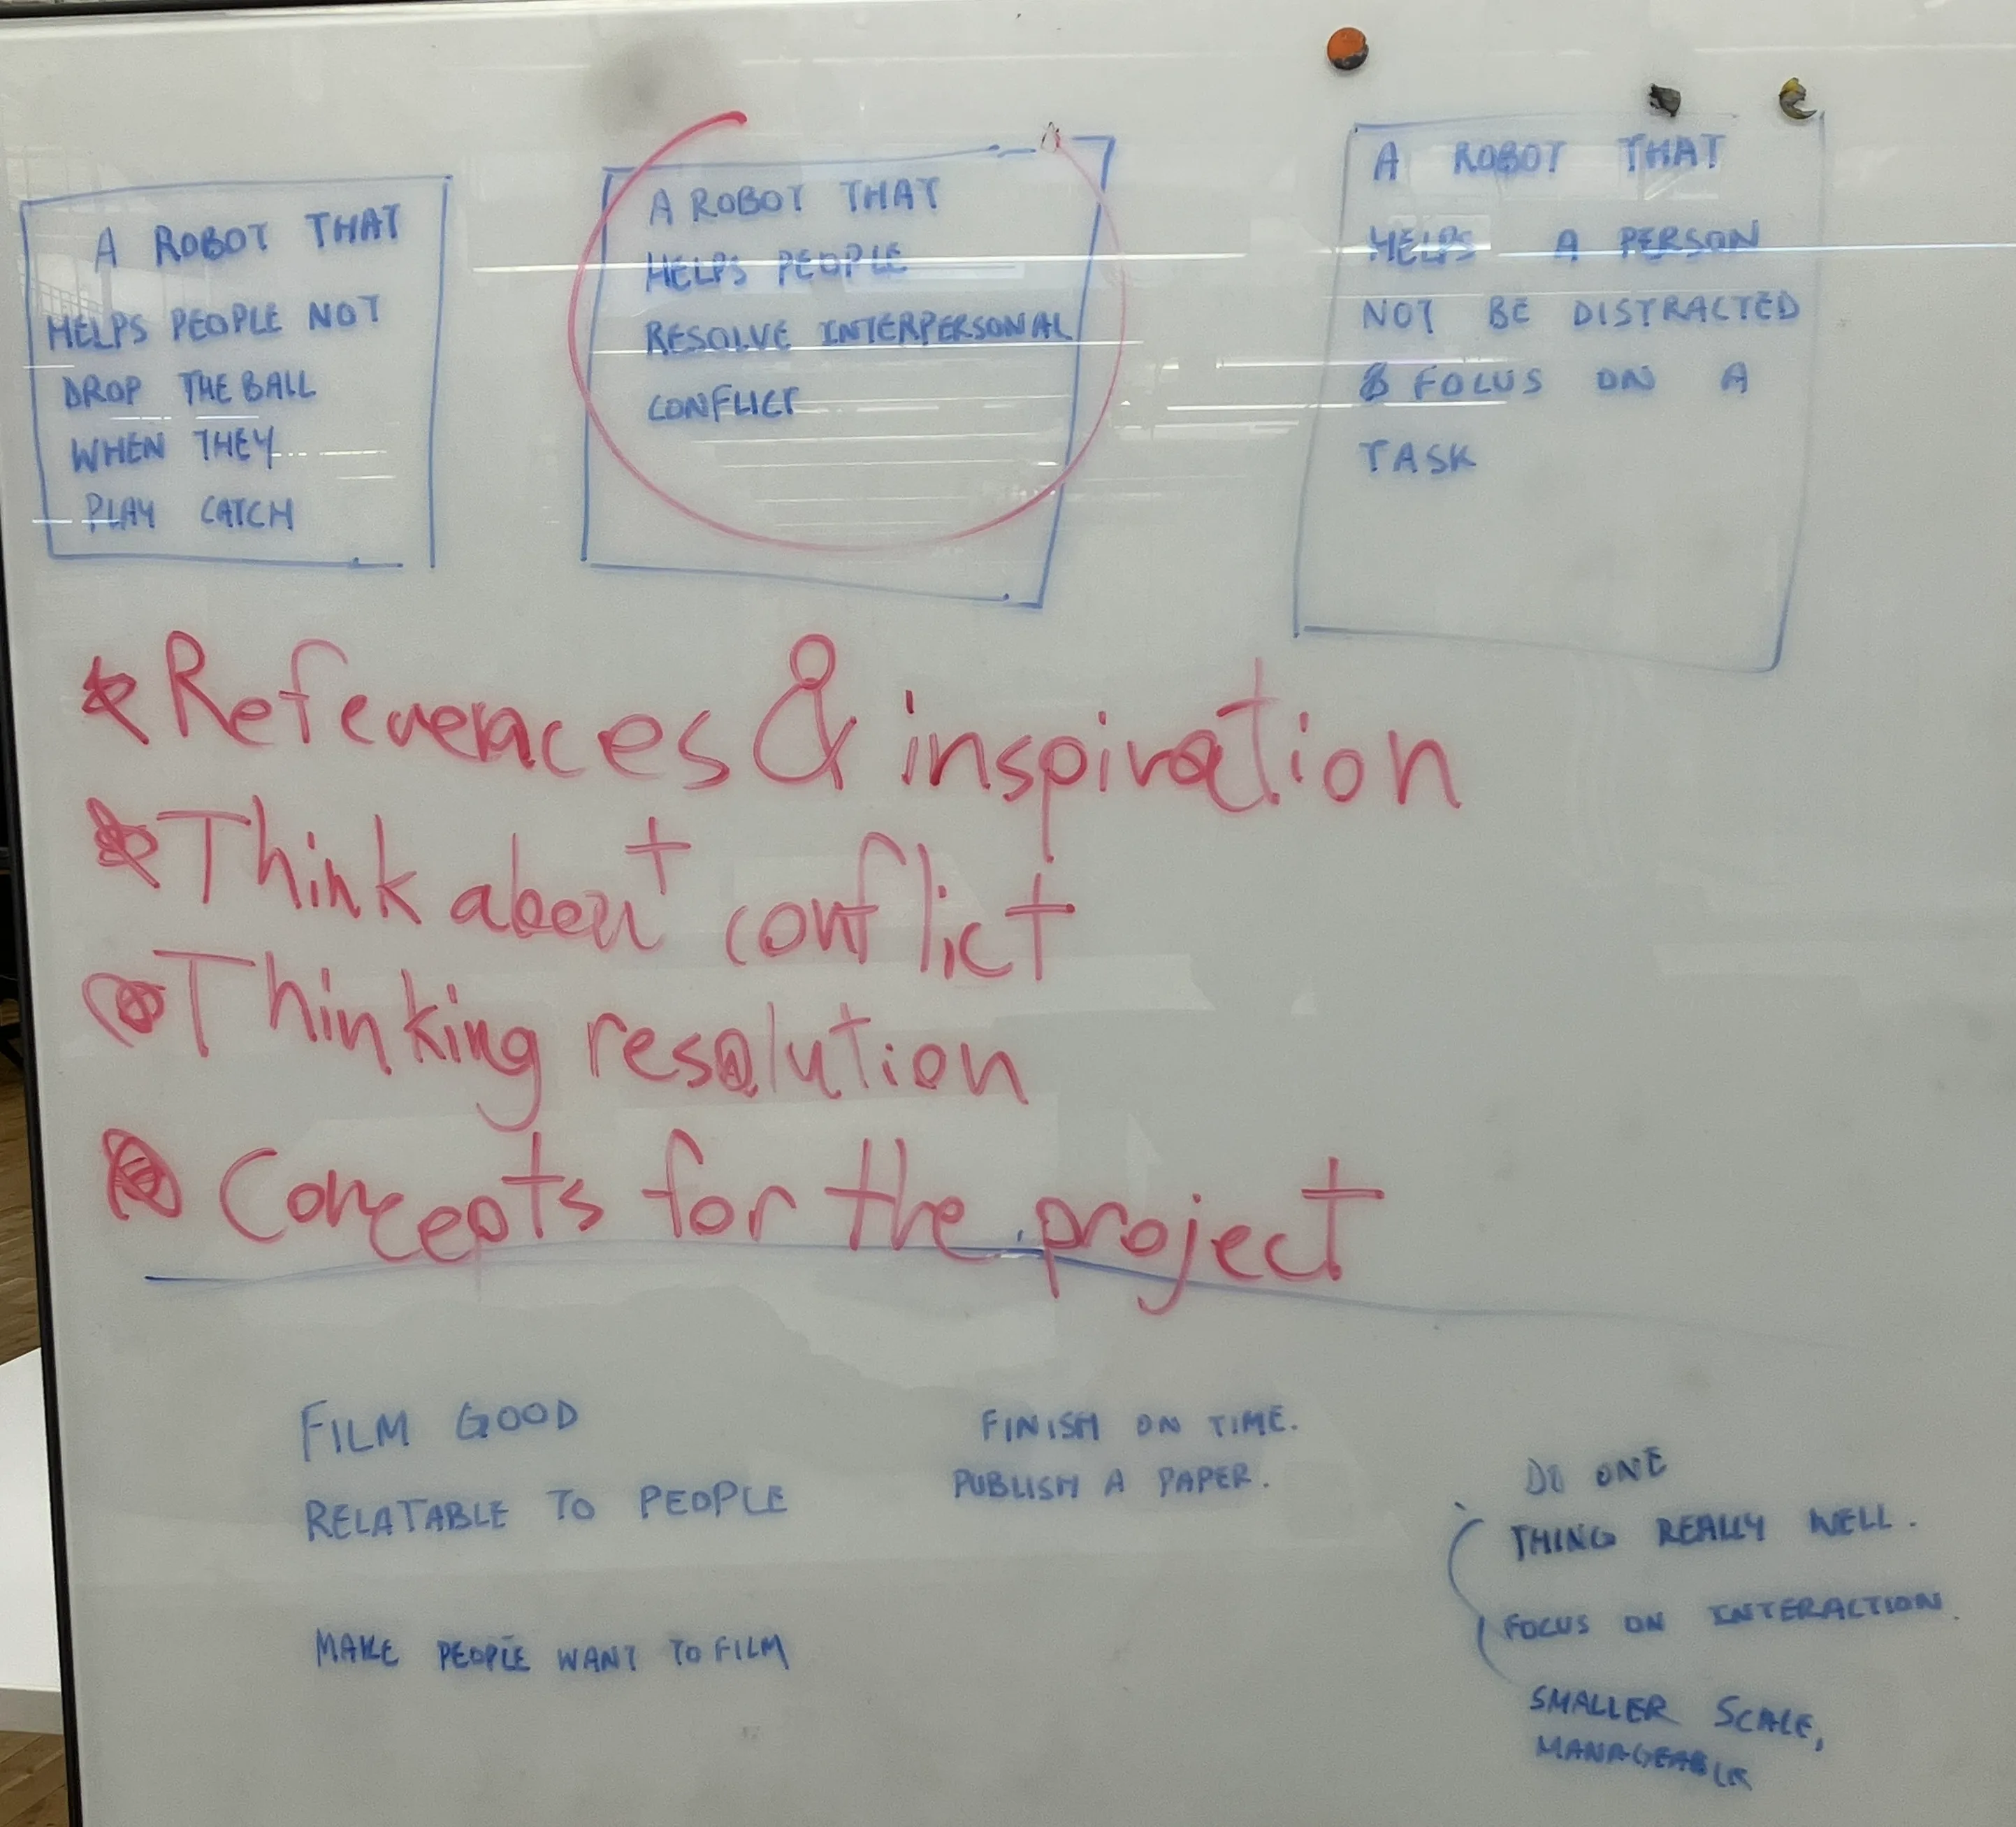 A ROBOT THAT
HELPS PEOPLE NOT
DROP THE BALL
WHEN THEY
PLAY CATCH
A ROBOT THAT
HELPS PEOPLE
RESOLVE INTERPERSONAL
CONFLICT
A ROBOT THAT
HELPS A PERSON
NOT BE DISTRACTED
& FOCUS ON A
TASK
References & inspiration
Think about conflict
Thinking resolution
Concepts for the project
FILM GOOD
RELATABLE TO PEOPLE
MAKE PEOPLE WANT TO FILM
FINISH ON TIME.
PUBLISH A PAPER.
DO ONE
THING REALLY WELL.
FOCUS ON INTERACTION.
SMALLER SCALE,
MANAGEABLE